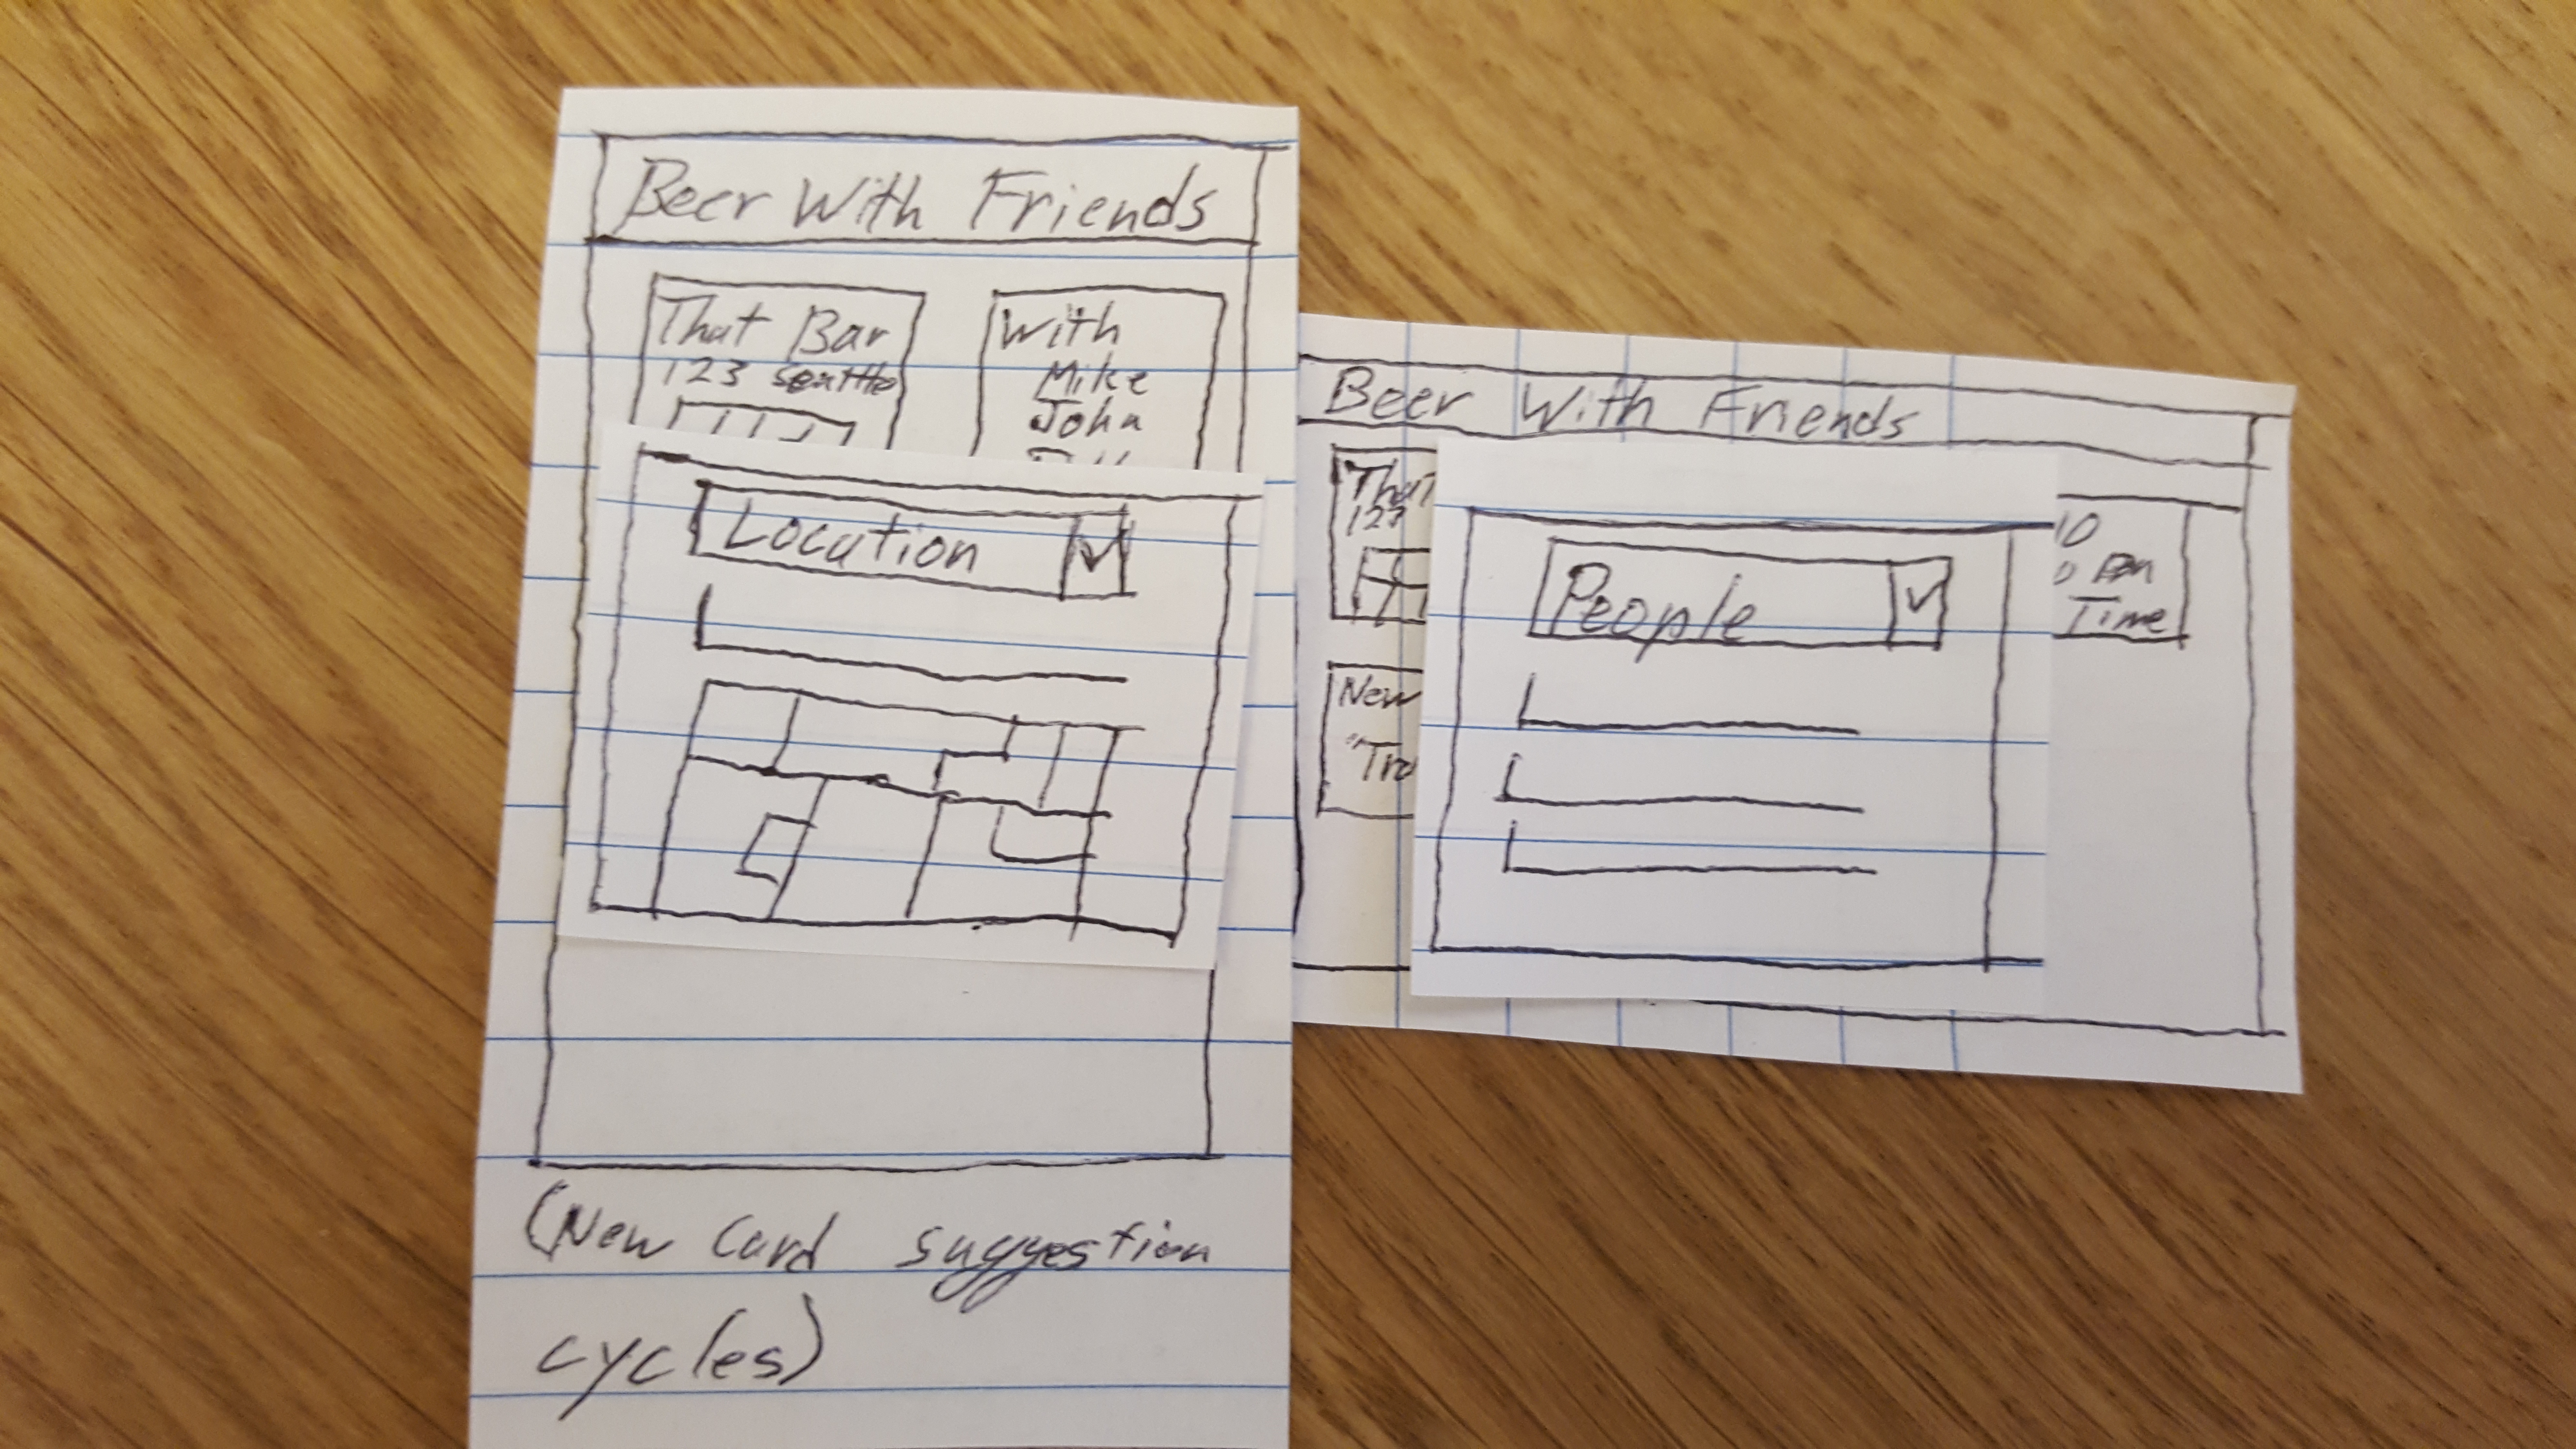 Beer With Friends
That Bar
123 Seattle
With
Mike
John
Location
(New Card suggestion
cycles)
Beer With Friends
That
123
New
"Tra
People
10
Time